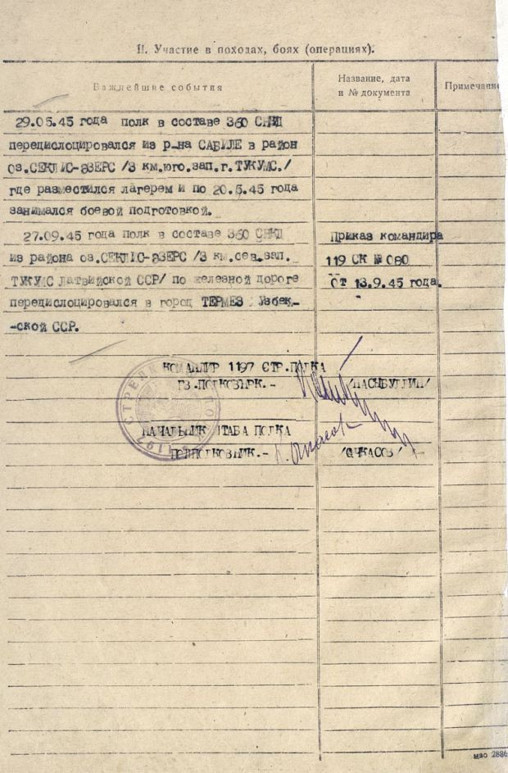 II. Участие в походах, боях (операциях).
Важнейшие события
Название, дата
и № документа
Примечание
29.05.45 года полк в составе 360 СНКД
передислоцировался из р-на САБИЛЕ в район
оз.СЕКЛИС-ЭЗЕРС /3 км.юго.зап.г.ТУКУМС./
где разместился лагерем и по 20.5.45 года
занимался боевой подготовкой.
27.09.45 года полк в составе 360 СНКД
Приказ командира
из района оз.СЕКЛИС-ЭЗЕРС /3 км.сев.зап.
119 СК № 080
ТУКУМС Латвийской ССР/ по железной дороге
от 13.9.45 года.
передислоцировался в город ТЕРМЕЗ Узбек-
-ской ССР.
КОМАНДИР 1197 СТР.ПОЛКА
ГВ.ПОЛКОВНИК.-
НАЧАЛЬНИК ШТАБА ПОЛКА
ПОДПОЛКОВНИК.-
мао 2886